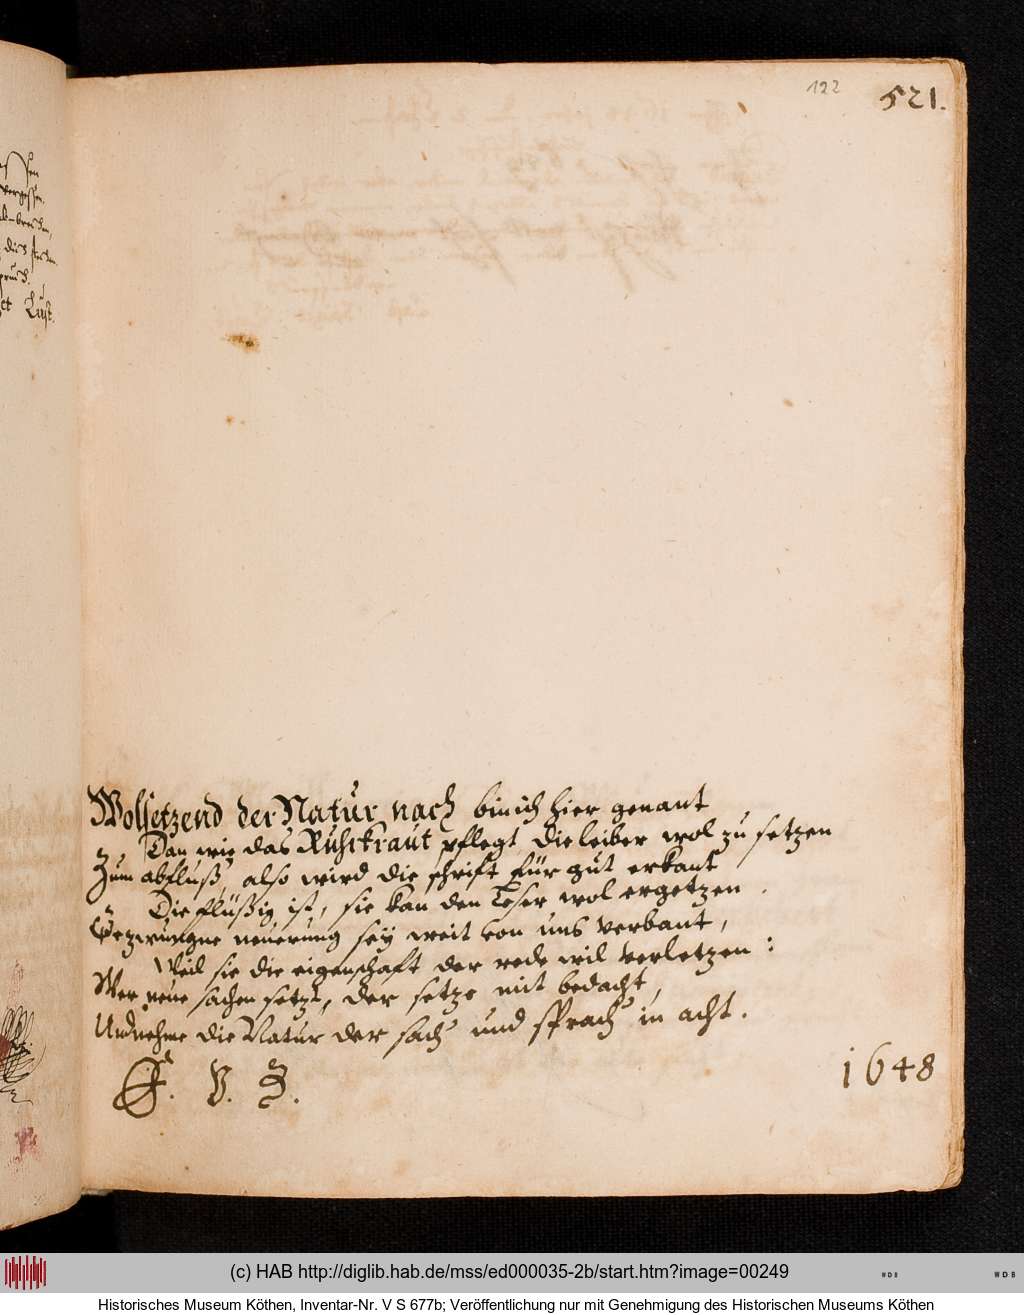 122
521.
Wolsetzend der Natur nach bin ich hier genant
Dan wie das Ruhrkraut pflegt die leiber wol zu setzen
Zum abfluß, also wird die schrift für gut erkant
Die flüßig ist, sie kan den Leser wol ergetzen.
Gezwungne neuerung sey weit von uns verbant,
Weil sie die eigenschaft der rede wil verletzen:
Wer neue sachen setzt, der setze mit bedacht,
Und nehme die Natur der sach' und sprach' in acht.
G. V. S.
1648
vergessen.
Lust.
(c) HAB http://diglib.hab.de/mss/ed000035-2b/start.htm?image=00249
WDB
WDB
Historisches Museum Köthen, Inventar-Nr. V S 677b; Veröffentlichung nur mit Genehmigung des Historischen Museums Köthen